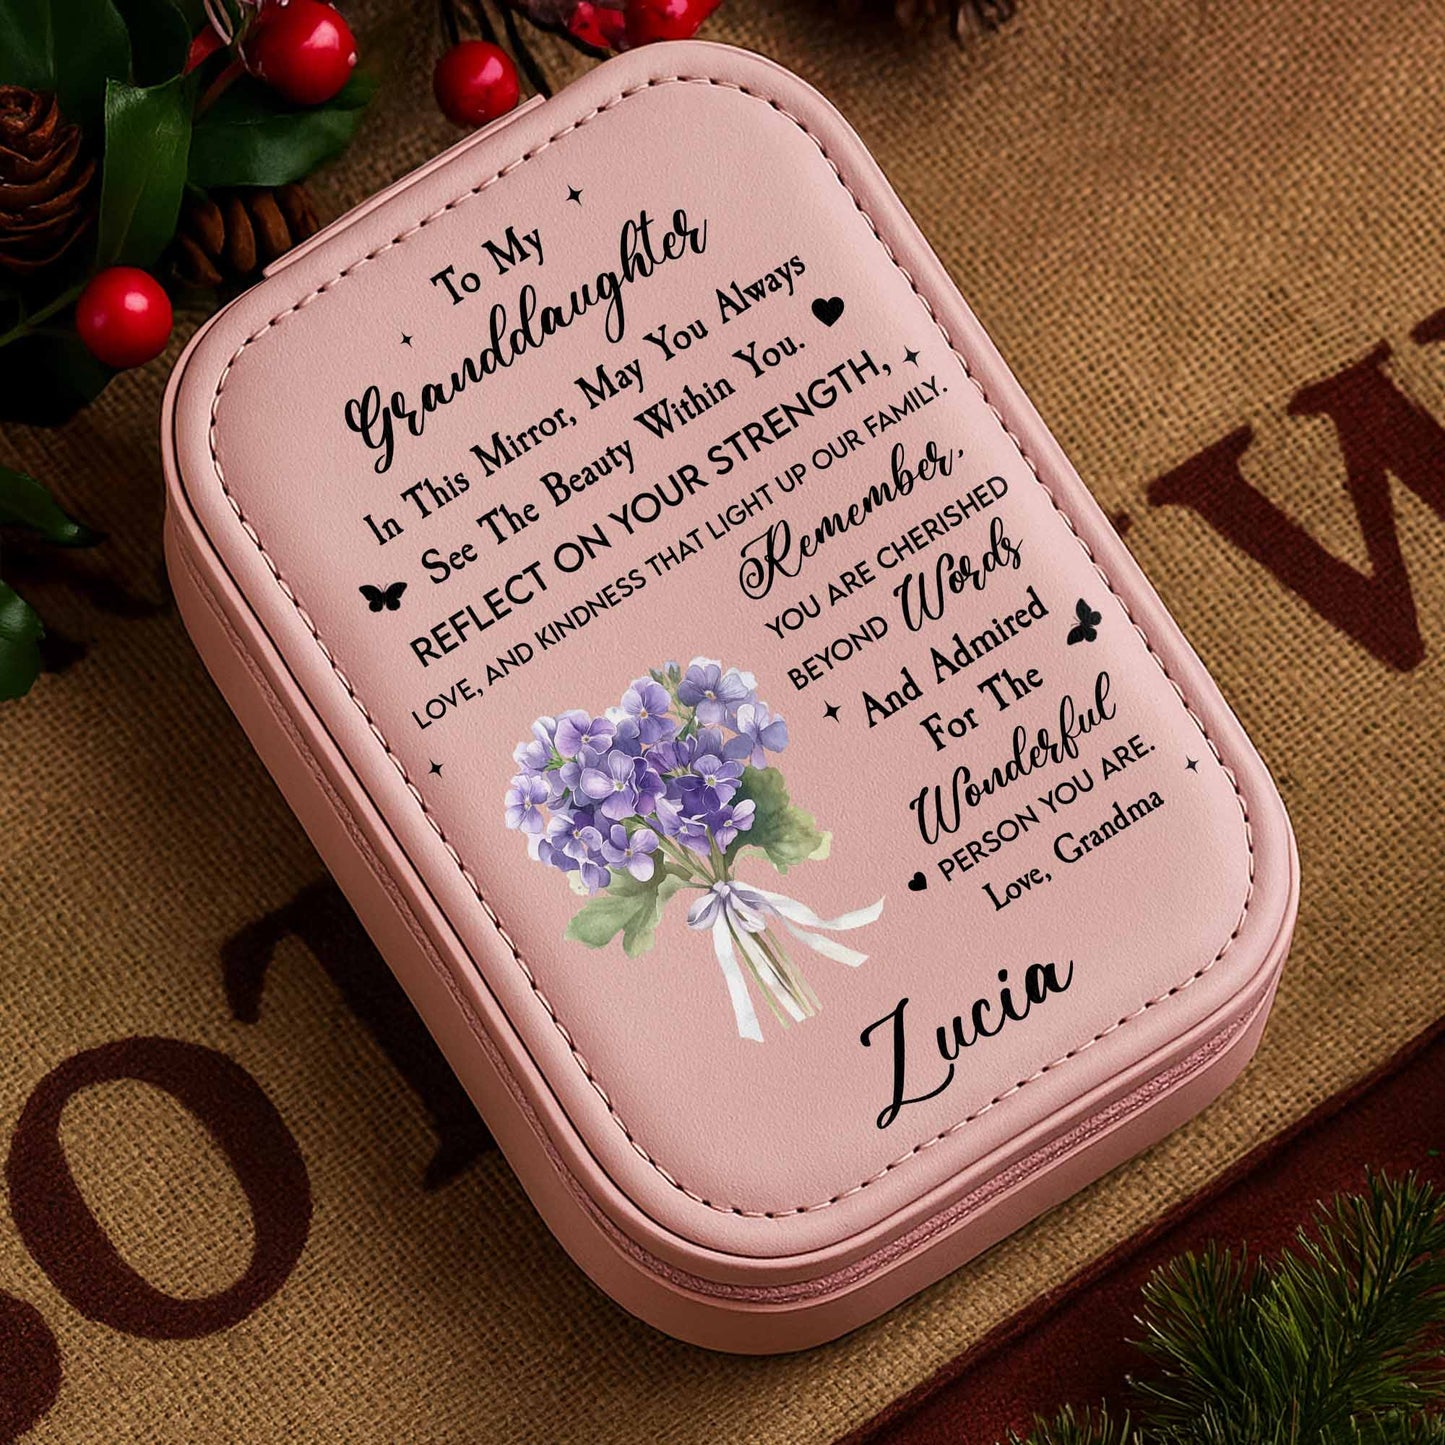 To My
Granddaughter
In This Mirror, May You Always
See The Beauty Within You.
REFLECT ON YOUR STRENGTH,
LOVE, AND KINDNESS THAT LIGHT UP OUR FAMILY.
Remember,
YOU ARE CHERISHED
BEYOND Words
And Admired
For The
Wonderful
PERSON YOU ARE.
Love, Grandma
Lucia